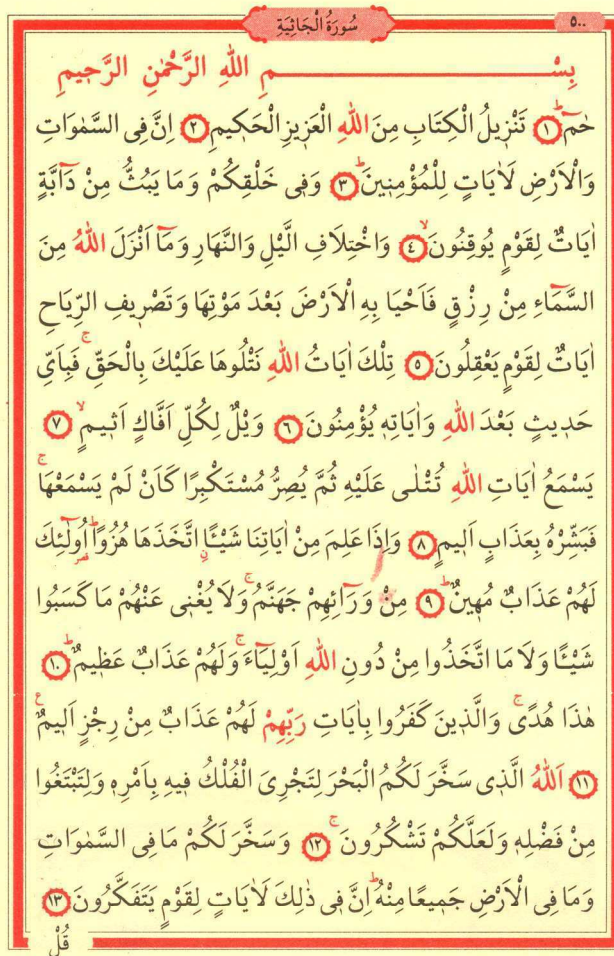 ٥٠٠
سُورَةُ الْجَاثِيَةِ
بِسْمِ اللهِ الرَّحْمٰنِ الرَّحٖيمِ
حٰمٓ ﴿١﴾ تَنْزٖيلُ الْكِتَابِ مِنَ اللهِ الْعَزٖيزِ الْحَكٖيمِ ﴿٢﴾ اِنَّ فِى السَّمٰوَاتِ
وَالْاَرْضِ لَاٰيَاتٍ لِلْمُؤْمِنٖينَؕ ﴿٣﴾ وَفٖى خَلْقِكُمْ وَمَا يَبُثُّ مِنْ دَٓابَّةٍ
اٰيَاتٌ لِقَوْمٍ يُوقِنُونَۙ ﴿٤﴾ وَاخْتِلَافِ الَّيْلِ وَالنَّهَارِ وَمَٓا اَنْزَلَ اللهُ مِنَ
السَّمَٓاءِ مِنْ رِزْقٍ فَاَحْيَا بِهِ الْاَرْضَ بَعْدَ مَوْتِهَا وَتَصْرٖيفِ الرِّيَاحِ
اٰيَاتٌ لِقَوْمٍ يَعْقِلُونَ ﴿٥﴾ تِلْكَ اٰيَاتُ اللهِ نَتْلُوهَا عَلَيْكَ بِالْحَقِّۚ فَبِاَىِّ
حَدٖيثٍ بَعْدَ اللهِ وَاٰيَاتِهٖ يُؤْمِنُونَ ﴿٦﴾ وَيْلٌ لِكُلِّ اَفَّاكٍ اَثٖيمٍۙ ﴿٧﴾
يَسْمَعُ اٰيَاتِ اللهِ تُتْلٰى عَلَيْهِ ثُمَّ يُصِرُّ مُسْتَكْبِرًا كَاَنْ لَمْ يَسْمَعْهَاۚ
فَبَشِّرْهُ بِعَذَابٍ اَلٖيمٍ ﴿٨﴾ وَاِذَا عَلِمَ مِنْ اٰيَاتِنَا شَيْـًٔا اتَّخَذَهَا هُزُوًاؕ اُولٰٓئِكَ
لَهُمْ عَذَابٌ مُهٖينٌؕ ﴿٩﴾ مِنْ وَرَٓائِهِمْ جَهَنَّمُۚ وَلَا يُغْنٖى عَنْهُمْ مَا كَسَبُوا
شَيْـًٔا وَلَا مَا اتَّخَذُوا مِنْ دُونِ اللهِ اَوْلِيَٓاءَۚ وَلَهُمْ عَذَابٌ عَظٖيمٌؕ ﴿١٠﴾
هٰذَا هُدًىۚ وَالَّذٖينَ كَفَرُوا بِاٰيَاتِ رَبِّهِمْ لَهُمْ عَذَابٌ مِنْ رِجْزٍ اَلٖيمٌ ع
﴿١١﴾ اَللهُ الَّذٖى سَخَّرَ لَكُمُ الْبَحْرَ لِتَجْرِىَ الْفُلْكُ فٖيهِ بِاَمْرِهٖ وَلِتَبْتَغُوا
مِنْ فَضْلِهٖ وَلَعَلَّكُمْ تَشْكُرُونَۚ ﴿١٢﴾ وَسَخَّرَ لَكُمْ مَا فِى السَّمٰوَاتِ
وَمَا فِى الْاَرْضِ جَمٖيعًا مِنْهُؕ اِنَّ فٖى ذٰلِكَ لَاٰيَاتٍ لِقَوْمٍ يَتَفَكَّرُونَ ﴿١٣﴾
قُلْ